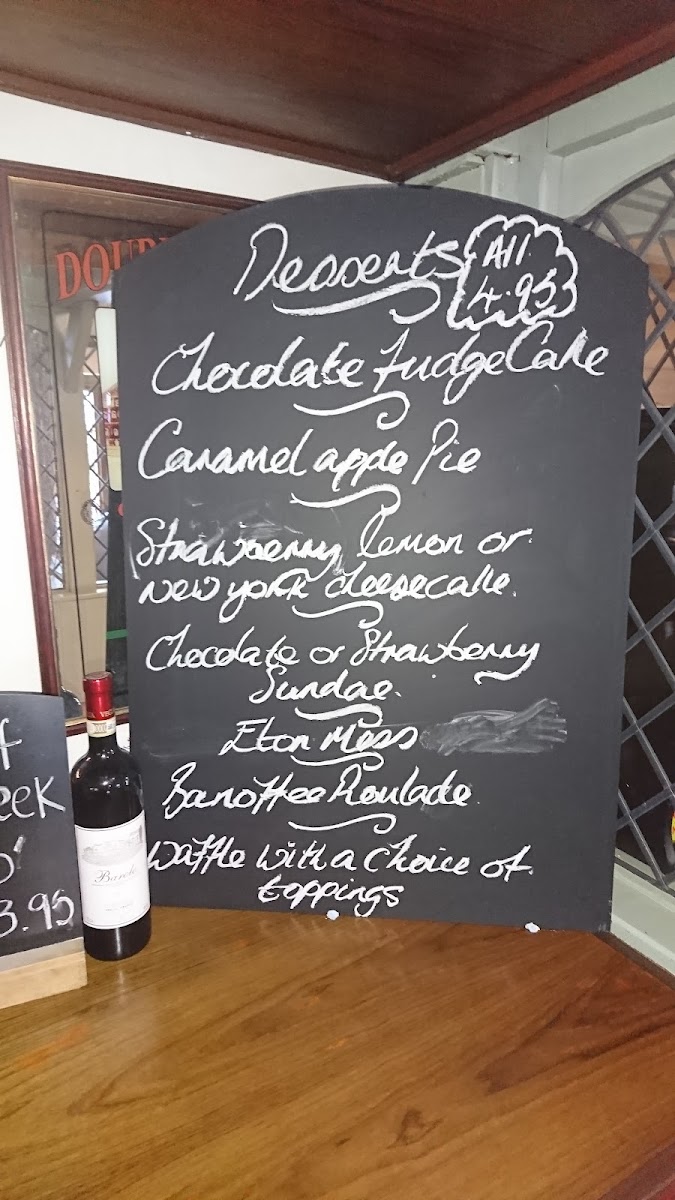 DOUB
Desserts
All
4.95
Chocolate Fudge Cake
Caramel apple Pie
Strawberry lemon or
New york cheesecake.
Chocolate or Strawberry
Sundae.
Eton Mess
Banoffee Roulade
Waffle with a choice of
toppings
Barolo
f
eek
3.95